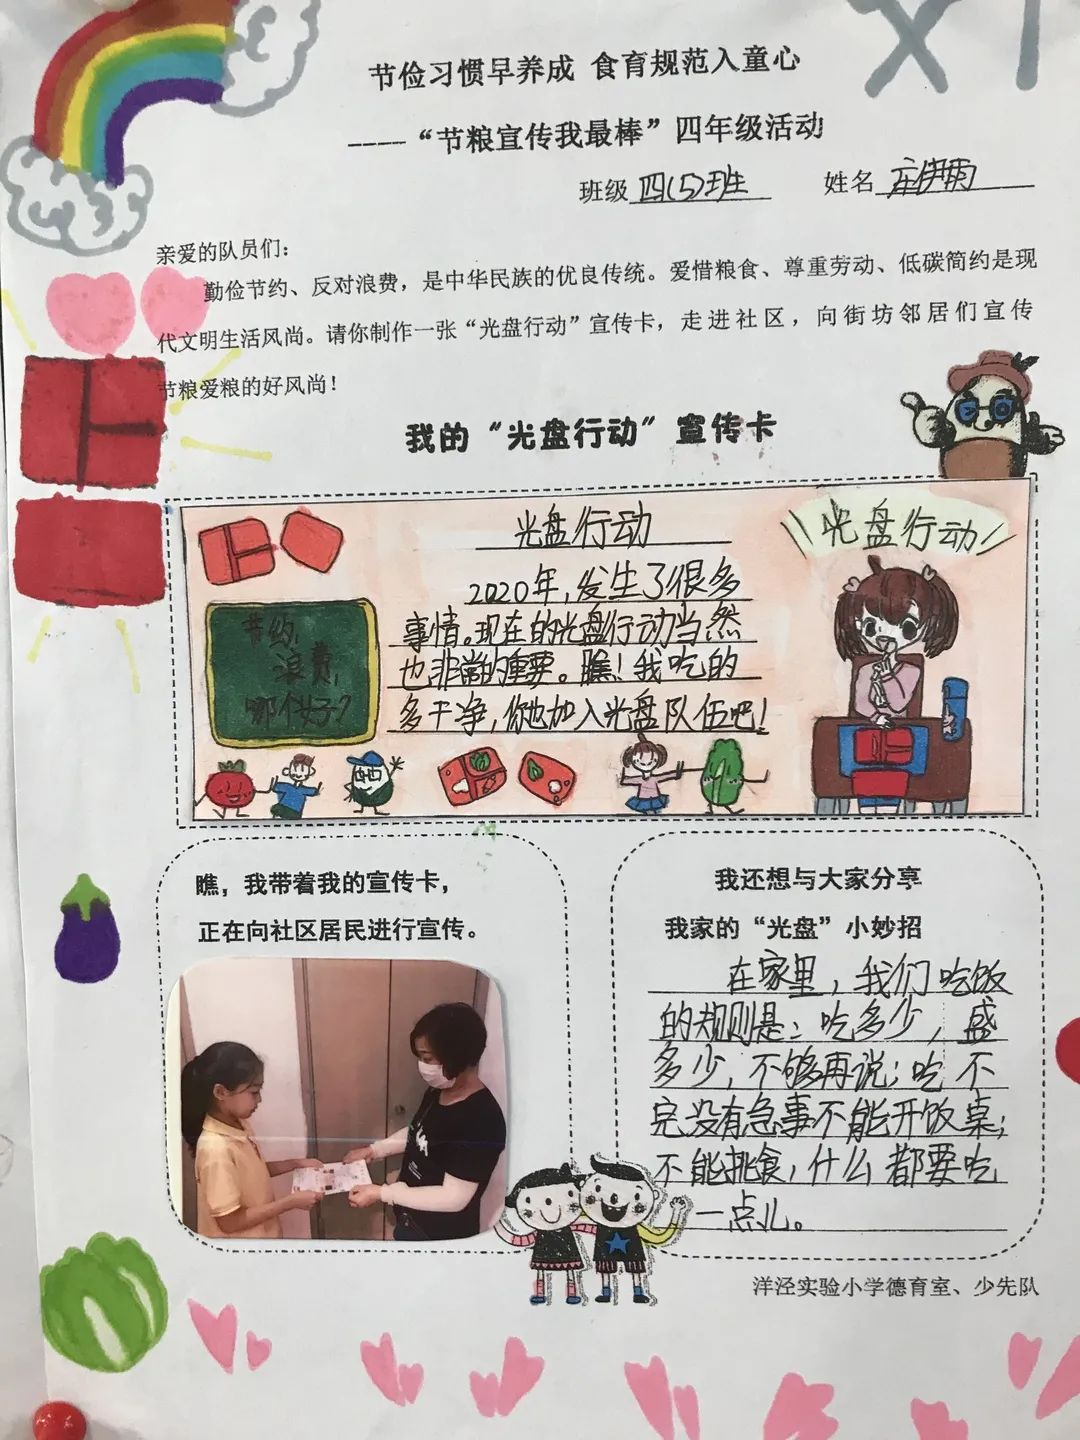 节俭习惯早养成 食育规范入童心
----“节粮宣传我最棒”四年级活动
班级 四(5)班 姓名 庄伊雨
亲爱的队员们：
勤俭节约、反对浪费，是中华民族的优良传统。爱惜粮食、尊重劳动、低碳简约是现
代文明生活风尚。请你制作一张“光盘行动”宣传卡，走进社区，向街坊邻居们宣传
节粮爱粮的好风尚！
我的“光盘行动”宣传卡
光盘行动
2020年，发生了很多
事情。现在的光盘行动当然
也非常的重要。瞧！我吃的
多干净，你也加入光盘队伍吧！
节约，
浪费，
哪个好？
光盘行动
瞧，我带着我的宣传卡，
正在向社区居民进行宣传。
我还想与大家分享
我家的“光盘”小妙招
在家里，我们吃饭
的规则是：吃多少，盛
多少，不够再说；吃不
完没有急事不能开饭桌；
不能挑食，什么都要吃
一点儿。
洋泾实验小学德育室、少先队